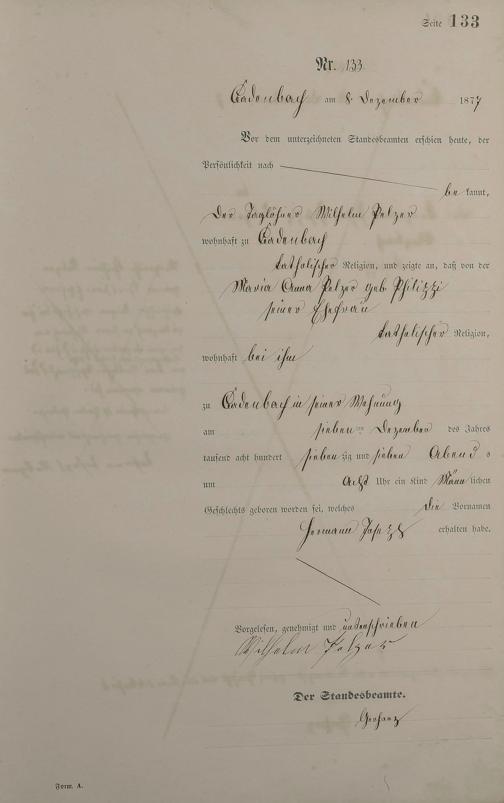 Seite 133
Nr. 133
Cadenbach am 8. Dezember 1877
Vor dem unterzeichneten Standesbeamten erschien heute, der
Persönlichkeit nach
be kannt,
Der Taglöhner Wilhelm Pelzer
wohnhaft zu Cadenbach
katholischer Religion, und zeigte an, daß von der
Maria Anna Pelzer geb
seiner Ehefrau
katholischer Religion,
wohnhaft bei ihm
zu Cadenbach in seiner Wohnung
am sieben ten Dezember des Jahres
tausend acht hundert sieben zig und sieben Abend s
um acht Uhr ein Kind Männ lichen
Geschlechts geboren worden sei, welches die Vornamen
Hermann Josef erhalten habe.
Vorgelesen, genehmigt und unterschrieben
Wilhelm Pelzer
Der Standesbeamte.
Form. A.